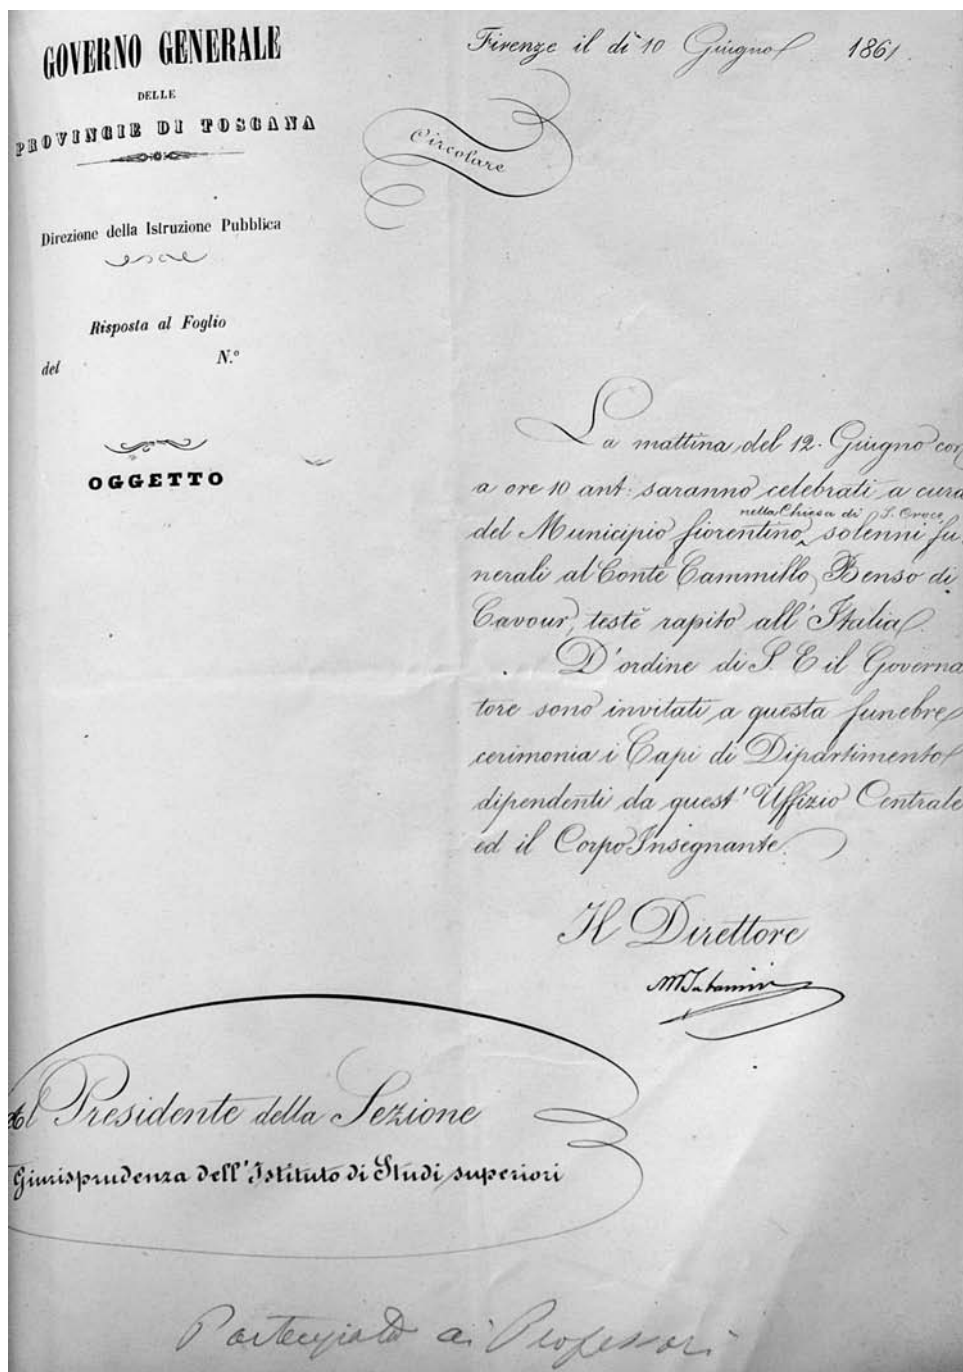 GOVERNO GENERALE
DELLE
PROVINCIE DI TOSCANA
Direzione della Istruzione Pubblica
Risposta al Foglio
del N.º
OGGETTO
Firenze il dì 10 Giugno 1861.
Circolare
La mattina del 12. Giugno cor
a ore 10 ant: saranno celebrati a cura
nella Chiesa di S. Croce
del Municipio fiorentino solenni fu
nerali al Conte Cammillo Benso di
Cavour, testè rapito all'Italia.
D'ordine di S. E il Governa
tore sono invitati a questa funebre
cerimonia i Capi di Dipartimento
dipendenti da quest'Uffizio Centrale
ed il Corpo Insegnante.
Il Direttore
MTabarrini
Al Presidente della Sezione
Giurisprudenza dell'Istituto di Studi superiori
Partecipato ai Professori